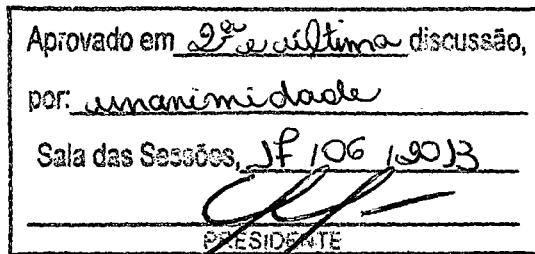 Aprovado em 2ª e última discussão,
por: unanimidade
Sala das Sessões, 17 / 06 / 2013
PRESIDENTE